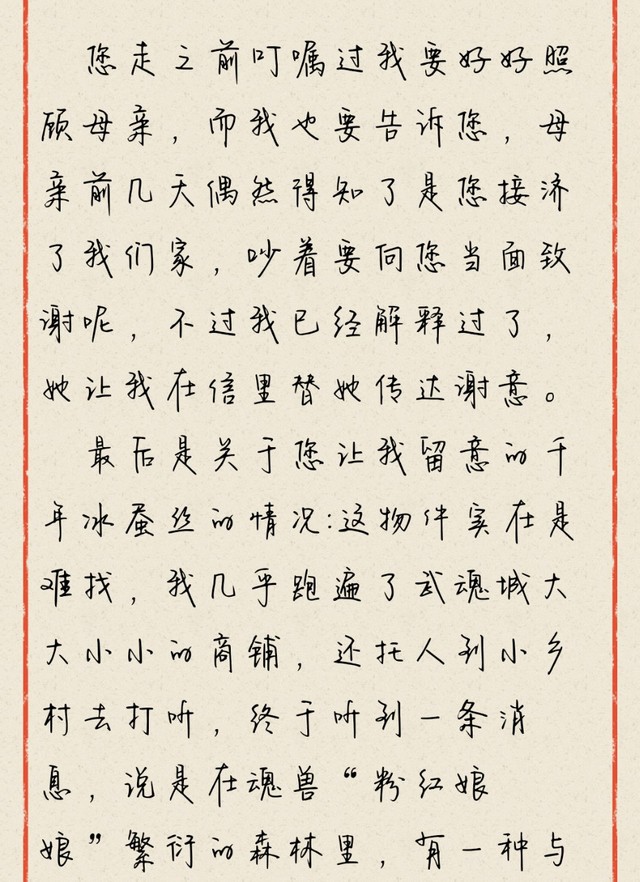 您走之前叮嘱过我要好好照
顾母亲，而我也要告诉您，母
亲前几天偶然得知了是您接济
了我们家，吵着要向您当面致
谢呢，不过我已经解释过了，
她让我在信里替她传达谢意。
最后是关于您让我留意的千
年冰蚕丝的情况:这物件实在是
难找，我几乎跑遍了武魂城大
大小小的商铺，还托人到小乡
村去打听，终于听到一条消
息，说是在魂兽“粉红娘
娘”繁衍的森林里，有一种与